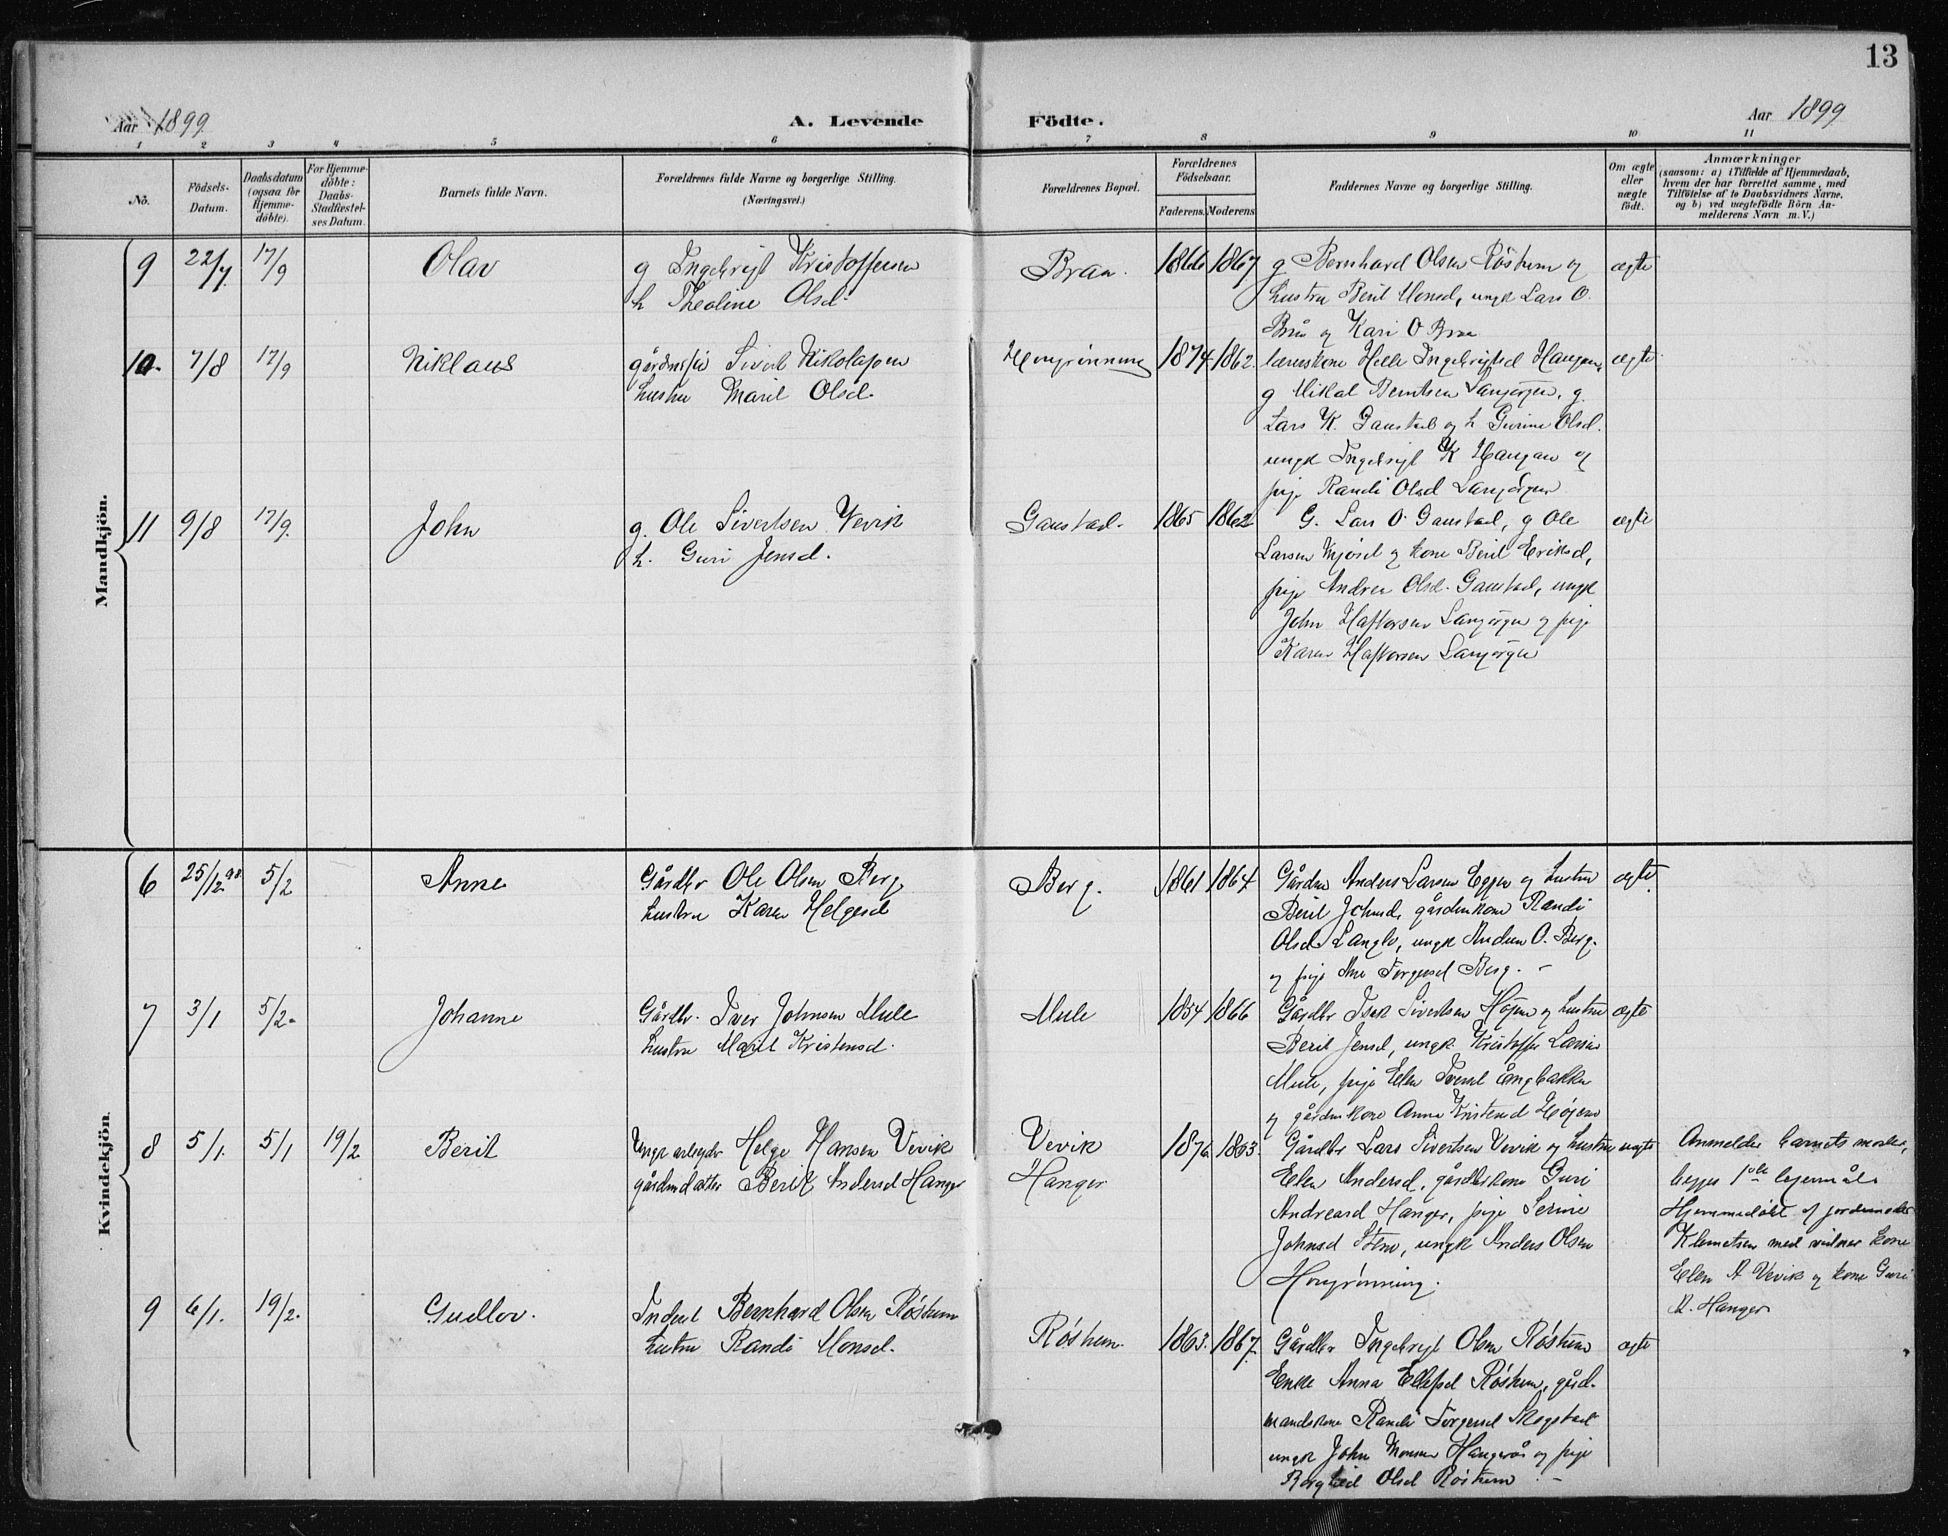 13
Aar 1899 A. Levende Födte. Aar 1899
1 2 3 4 5 6 7 8 9 10 11
No.
Födsels-Datum.
Daabsdatum (ogsaa for Hjemme-döbte).
For Hjemme-döbte: Daabs-Stadfæstel-ses Datum.
Barnets fulde Navn.
Forældrenes fulde Navne og borgerlige Stilling.
(Næringsvei.)
Forældrenes Bopæl.
Forældrenes Födselsaar.
Faderens. Moderens
Faddernes Navne og borgerlige Stilling.
Om ægte eller uægte födt.
Anmærkninger
(saasom: a) i Tilfælde af Hjemmedaab,
hvem der har forrettet samme, med
Tilföielse af to Daabsvidners Navne,
og b) ved uægtefödte Börn An-
melderens Navn m. V.)
Mandkjön.
9 22/7. 17/9 Olav
g Ingebrigt Kristoffersen
h Theoline Olsd.
Braa. 1866 1867
g Bernhard Olsen Röshem og
hustru Beril Monsd, ungk Lars O.
Brå og Kari O Braa
ægte
10. 7/8 17/9 Niklaus
Sivert Nikolajsen
hustru Maril Olsd.
Hongrönning 1874 1862.
Ingebrigtsd Haugen,
g Mikal Berntsen Langörgen, g.
Lars K. Gaustad og h Gurine Olsd.
ungk Ingebrigt K Haugan og
pige Randi Olsd Langörgen
ægte
11 9/8 17/9. John
g. Ole Sivertsen Vevik
h. Guri Jensd.
Gaustad. 1865 1862
G. Lars O. Gaustad, g Ole
Larsen Mjöset og kone Beril Eriksd,
pige Andrea Olsd. Gaustad, ungk
John Haftorsen Langörgen og pige
Karen Haftorsen Langörgen
ægte
Kvindekjön.
6 25/12 98 5/2 Anne
Gårdbr Ole Olsen Berg
hustru Karen Helgesd
Berg. 1861 1864
Anders Larsen Eggen og hustru
Beril Johnsd, Randi
Olsd Langlo, ungk Andreas O. Berg.
og pige Ane Torgersd Berg. -
ægte.
7 3/1 5/2. Johanne
Gårdbr. Iver Johnsen Mule
hustru Maril Kristensd.
Mule 1854 1866
Gårdbr Isak Sivertsen Höjem og hustru
Beril Jensd, ungk. Kristoffer Larsen
Mule, pige Elen Iversd
og Anne Kristensd Höjem
ægte
8 5/1. 5/1 19/2 Beril
Ungk arbejder Helge Hansen Vevik
gårdmdatter Beril Andersd Hanger
Vevik
Hanger
1876 1863.
Gårdbr Lars Sivertsen Vevik og hustru
Elen Andersd, gårdbrkone Guri
Andreasd Hanger, pige Serine
Johnsd Sten, ungk Anders Olsen
Hongrönning.
uægte
Anmelder barnets moder,
begges 1ste lejermål.
Hjemmedöbt af jordemoder
Klemetsen med vidner kone
Elen A Vevik og kone Guri
A. Hanger
9 6/1. 19/2. Gudlov.
Inderst Bernhard Olsen Röshem
hustru Randi Monsd.
Röshem. 1863. 1867.
Gårdbr Ingebrigt Olsen Röshem
Enke Anna Ellefsd Röshem, gård-
mandskone Randi Torgersd Skogstad
ungk John Monsen Hangerås og pige
Borghild Olsd Röshem -
ægte